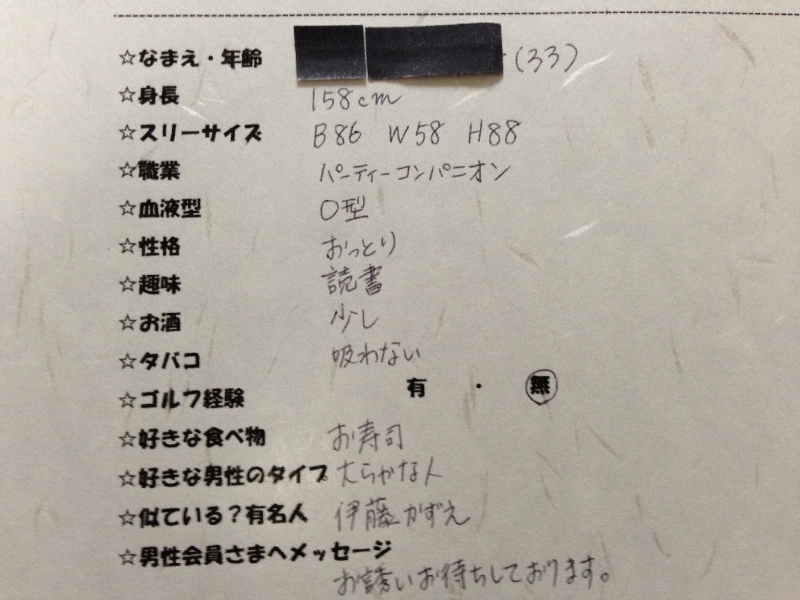 ☆なまえ・年齢 (33)
☆身長 158cm
☆スリーサイズ B86 W58 H88
☆職業 パーティーコンパニオン
☆血液型 O型
☆性格 おっとり
☆趣味 読書
☆お酒 少し
☆タバコ 吸わない
☆ゴルフ経験 有・無
☆好きな食べ物 お寿司
☆好きな男性のタイプ 大らかな人
☆似ている?有名人 伊藤かずえ
☆男性会員さまへメッセージ
お誘いお待ちしております。